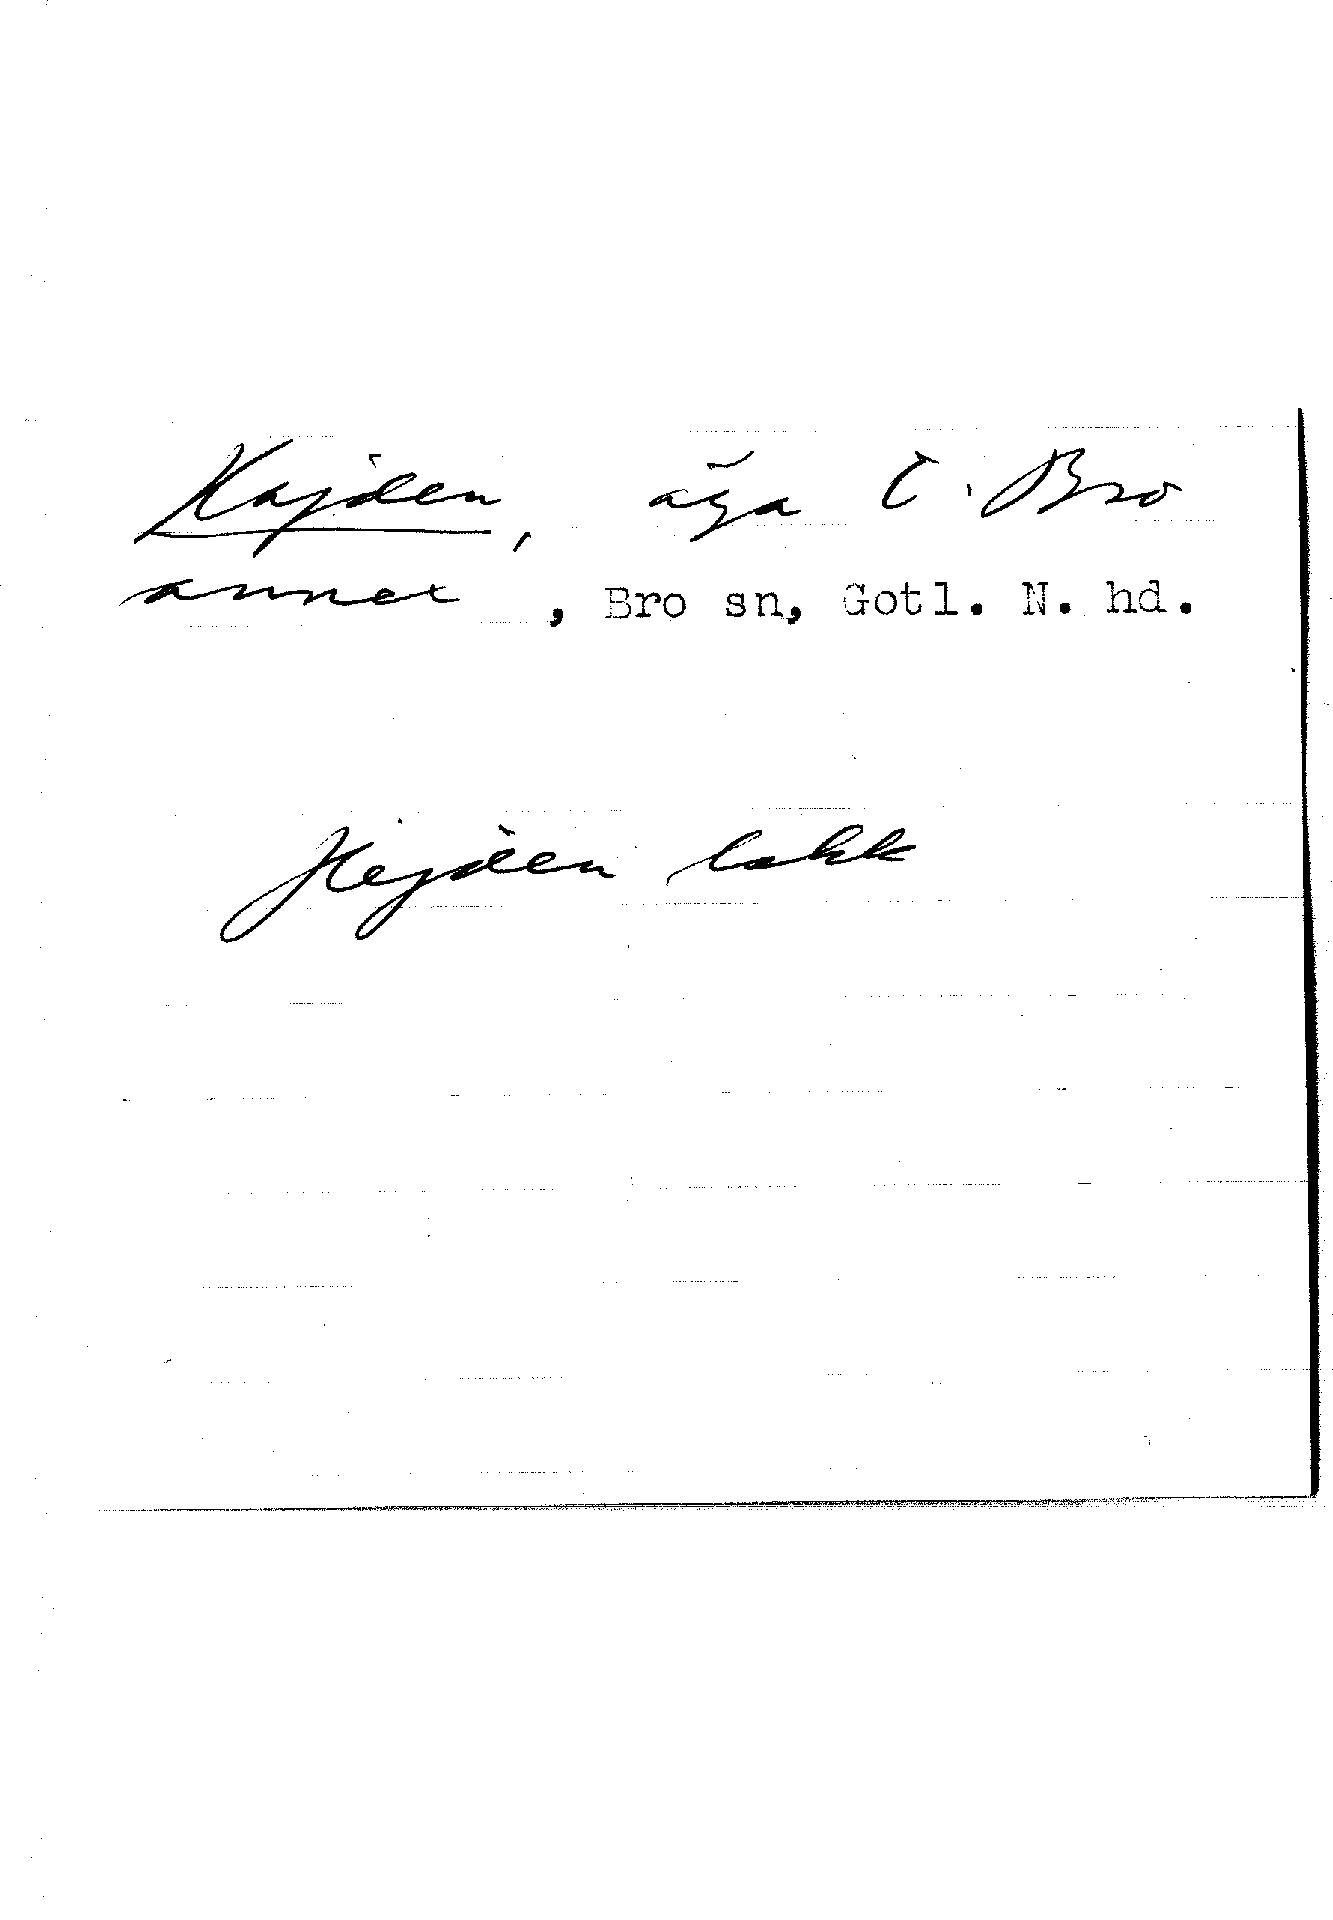 Hajden, äga t. Bro
annex, Bro sn, Gotl. N. hd.
Hejden lokk